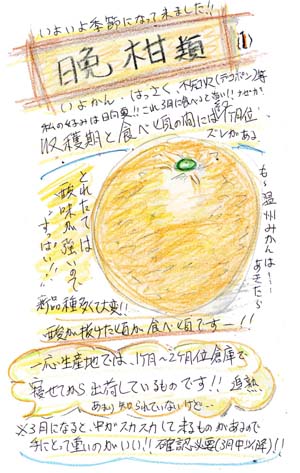 いよいよ季節になって来ました!!
晩柑類 ①
いよかん・はっさく、不知火(デコポン)等
私の好みは日向夏!! これ3月に食べって旨い!! ナゼか?
収穫期と食べ頃の間には1ヶ月位
ズレがある
も〜温州みかんは!!―
あきたら
とれたては
酸味が強いので
すっぱい!!
新品種多くて大変!!
酸が抜けた頃が食べ頃です〜!!
一応生産地では、1ヶ月〜2ヶ月位倉庫で
寝せてから出荷しているものです!! 追熟
あまり知られていないけど…
※3月になると中がスカスカして来るものがあるので
手にとって重いのがいい!! 確認必要(3月中以降)!!